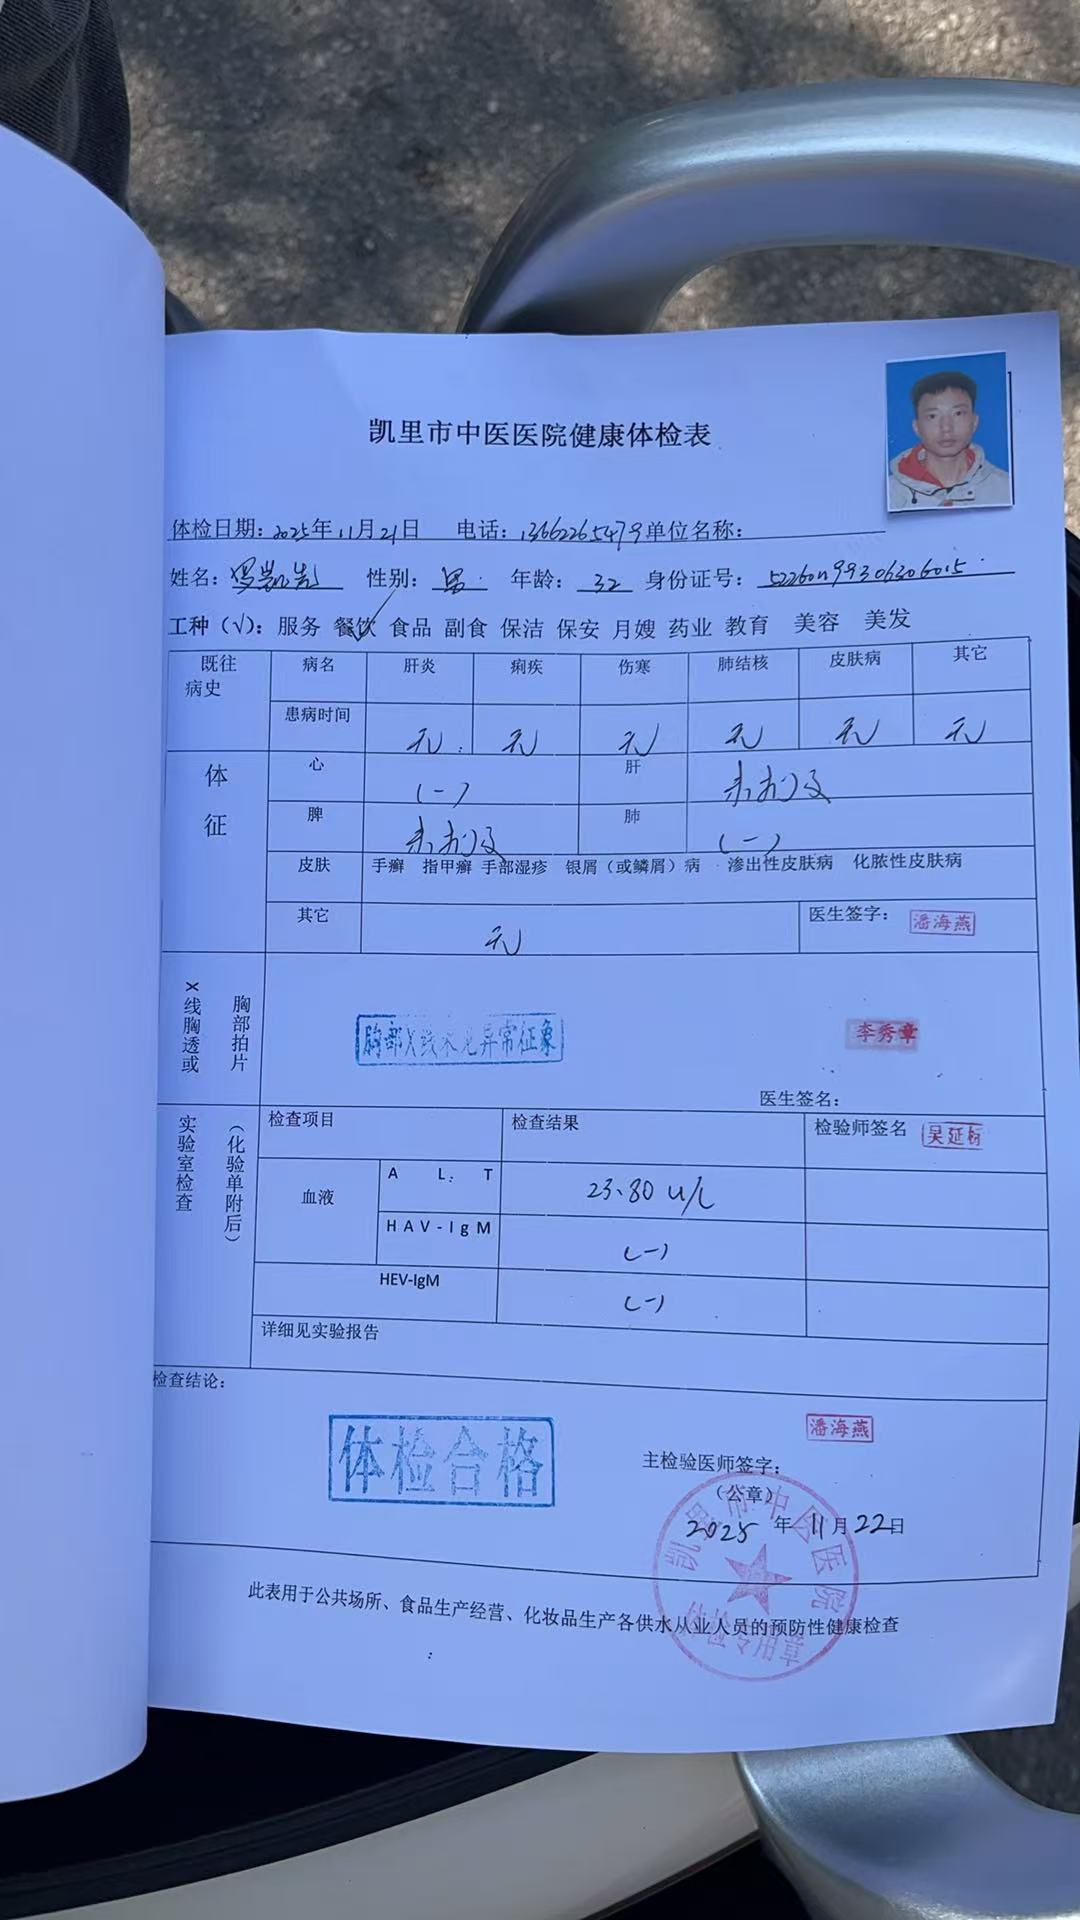 凯里市中医医院健康体检表
体检日期：2025年11月21日 电话：13662265479 单位名称：
姓名：罗凯先 性别：男 年龄：32 身份证号：
工种（√）：服务 餐饮 食品 副食 保洁 保安 月嫂 药业 教育 美容 美发
既往病史 病名 肝炎 痢疾 伤寒 肺结核 皮肤病 其它
患病时间 无 无 无 无 无 无
体征 心 (一) 肝 未扪及
脾 未扪及 肺 (一)
皮肤 手癣 指甲癣 手部湿疹 银屑（或鳞屑）病 渗出性皮肤病 化脓性皮肤病
其它 无 医生签字：潘海燕
X线胸透或胸部拍片 胸部X线未见异常征象 李秀章
医生签名：
实验室检查（化验单附后） 检查项目 检查结果 检验师签名 吴延标
血液 ALT 23.80 u/L
HAV-IgM (一)
HEV-IgM (一)
详细见实验报告
检查结论：
体检合格
潘海燕
主检验医师签字：
（公章）
2025年11月22日
凯里市中医医院
体检专用章
此表用于公共场所、食品生产经营、化妆品生产各供水从业人员的预防性健康检查